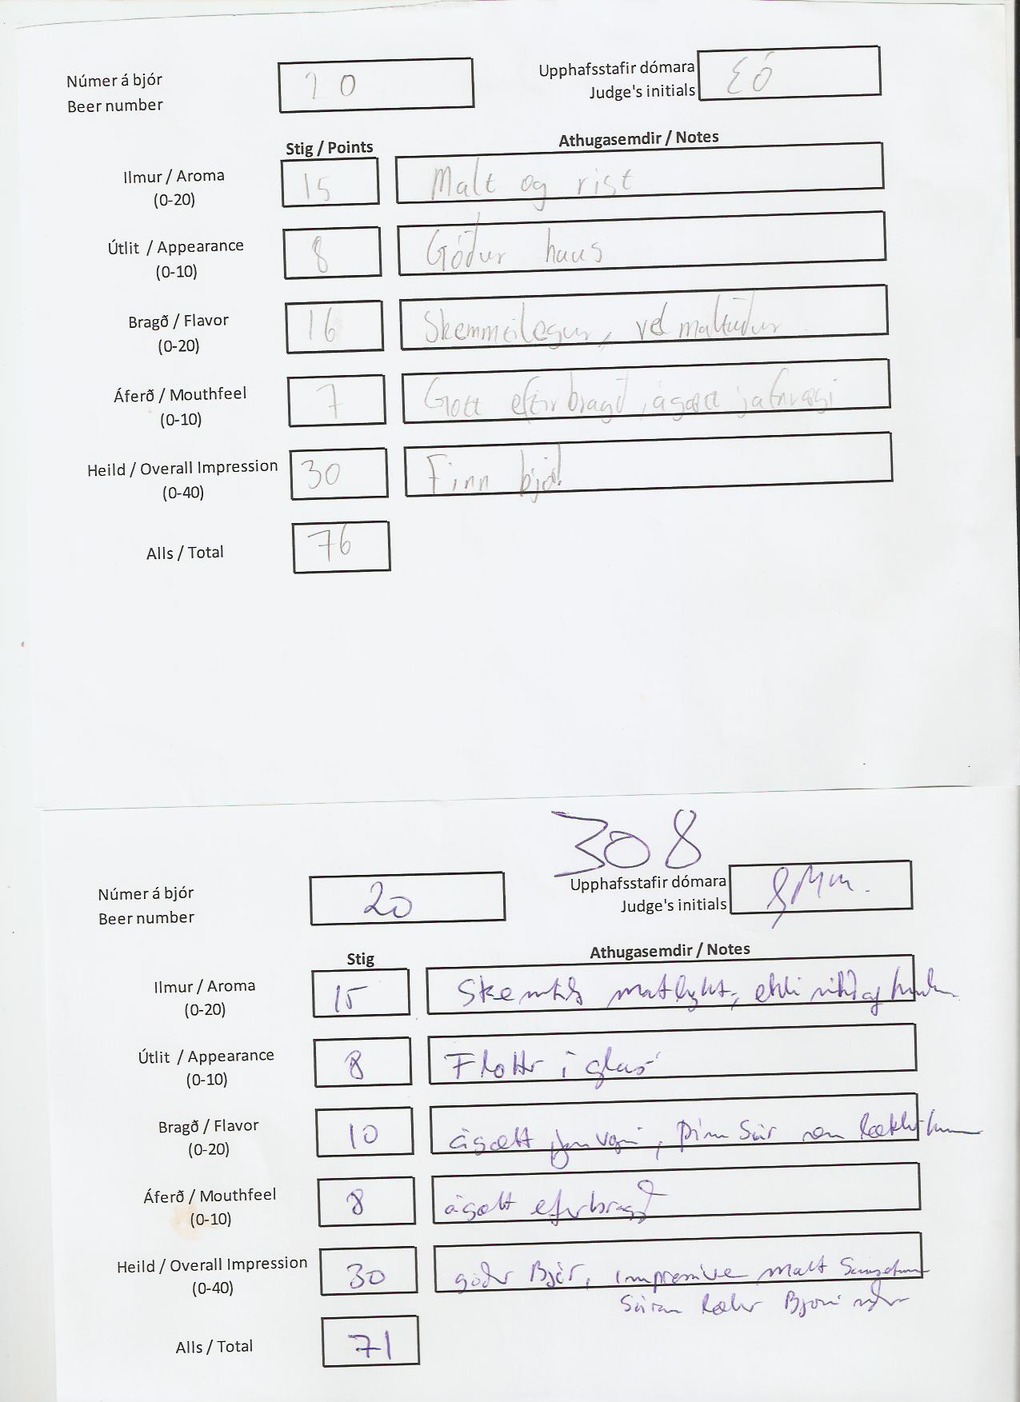 Númer á bjór
Beer number
20
Upphafsstafir dómara
Judge's initials
EÓ
Stig / Points
Athugasemdir / Notes
Ilmur / Aroma
(0-20)
15
Malt og rist
Útlit / Appearance
(0-10)
8
Góður haus
Bragð / Flavor
(0-20)
16
Skemmtilegur, vel maltaður
Áferð / Mouthfeel
(0-10)
7
Gott eftirbragð, ágætt jafnvægi
Heild / Overall Impression
(0-40)
30
Fínn bjór
Alls / Total
76
308
Númer á bjór
Beer number
20
Upphafsstafir dómara
Judge's initials
Stig
Athugasemdir / Notes
Ilmur / Aroma
(0-20)
15
maltlykt, ekki
Útlit / Appearance
(0-10)
8
Flottr í glasi
Bragð / Flavor
(0-20)
10
ágætt jafnvægi, súr
Áferð / Mouthfeel
(0-10)
8
ágætt eftirbragð
Heild / Overall Impression
(0-40)
30
góðr Bjór, impressive malt
Bjóri niðr
Alls / Total
71